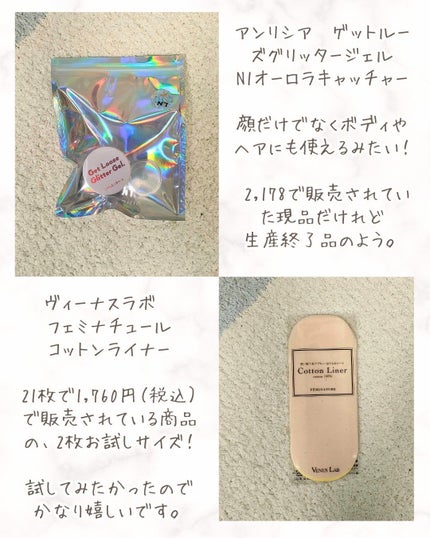 アンリシア　ゲットルー
ズグリッタージェル
N1オーロラキャッチャー
顔だけでなくボディや
ヘアにも使えるみたい！
2,178で販売されてい
た現品だけれど
生産終了品のよう。
N1
Get Loose
Glitter Gel.
ヴィーナスラボ
フェミナチュール
コットンライナー
21枚で1,760円(税込)
で販売されている商品
の、2枚お試しサイズ！
試してみたかったので
かなり嬉しいです。
Cotton Liner
cotton 100%
FEMINATURE
VENUS LAB